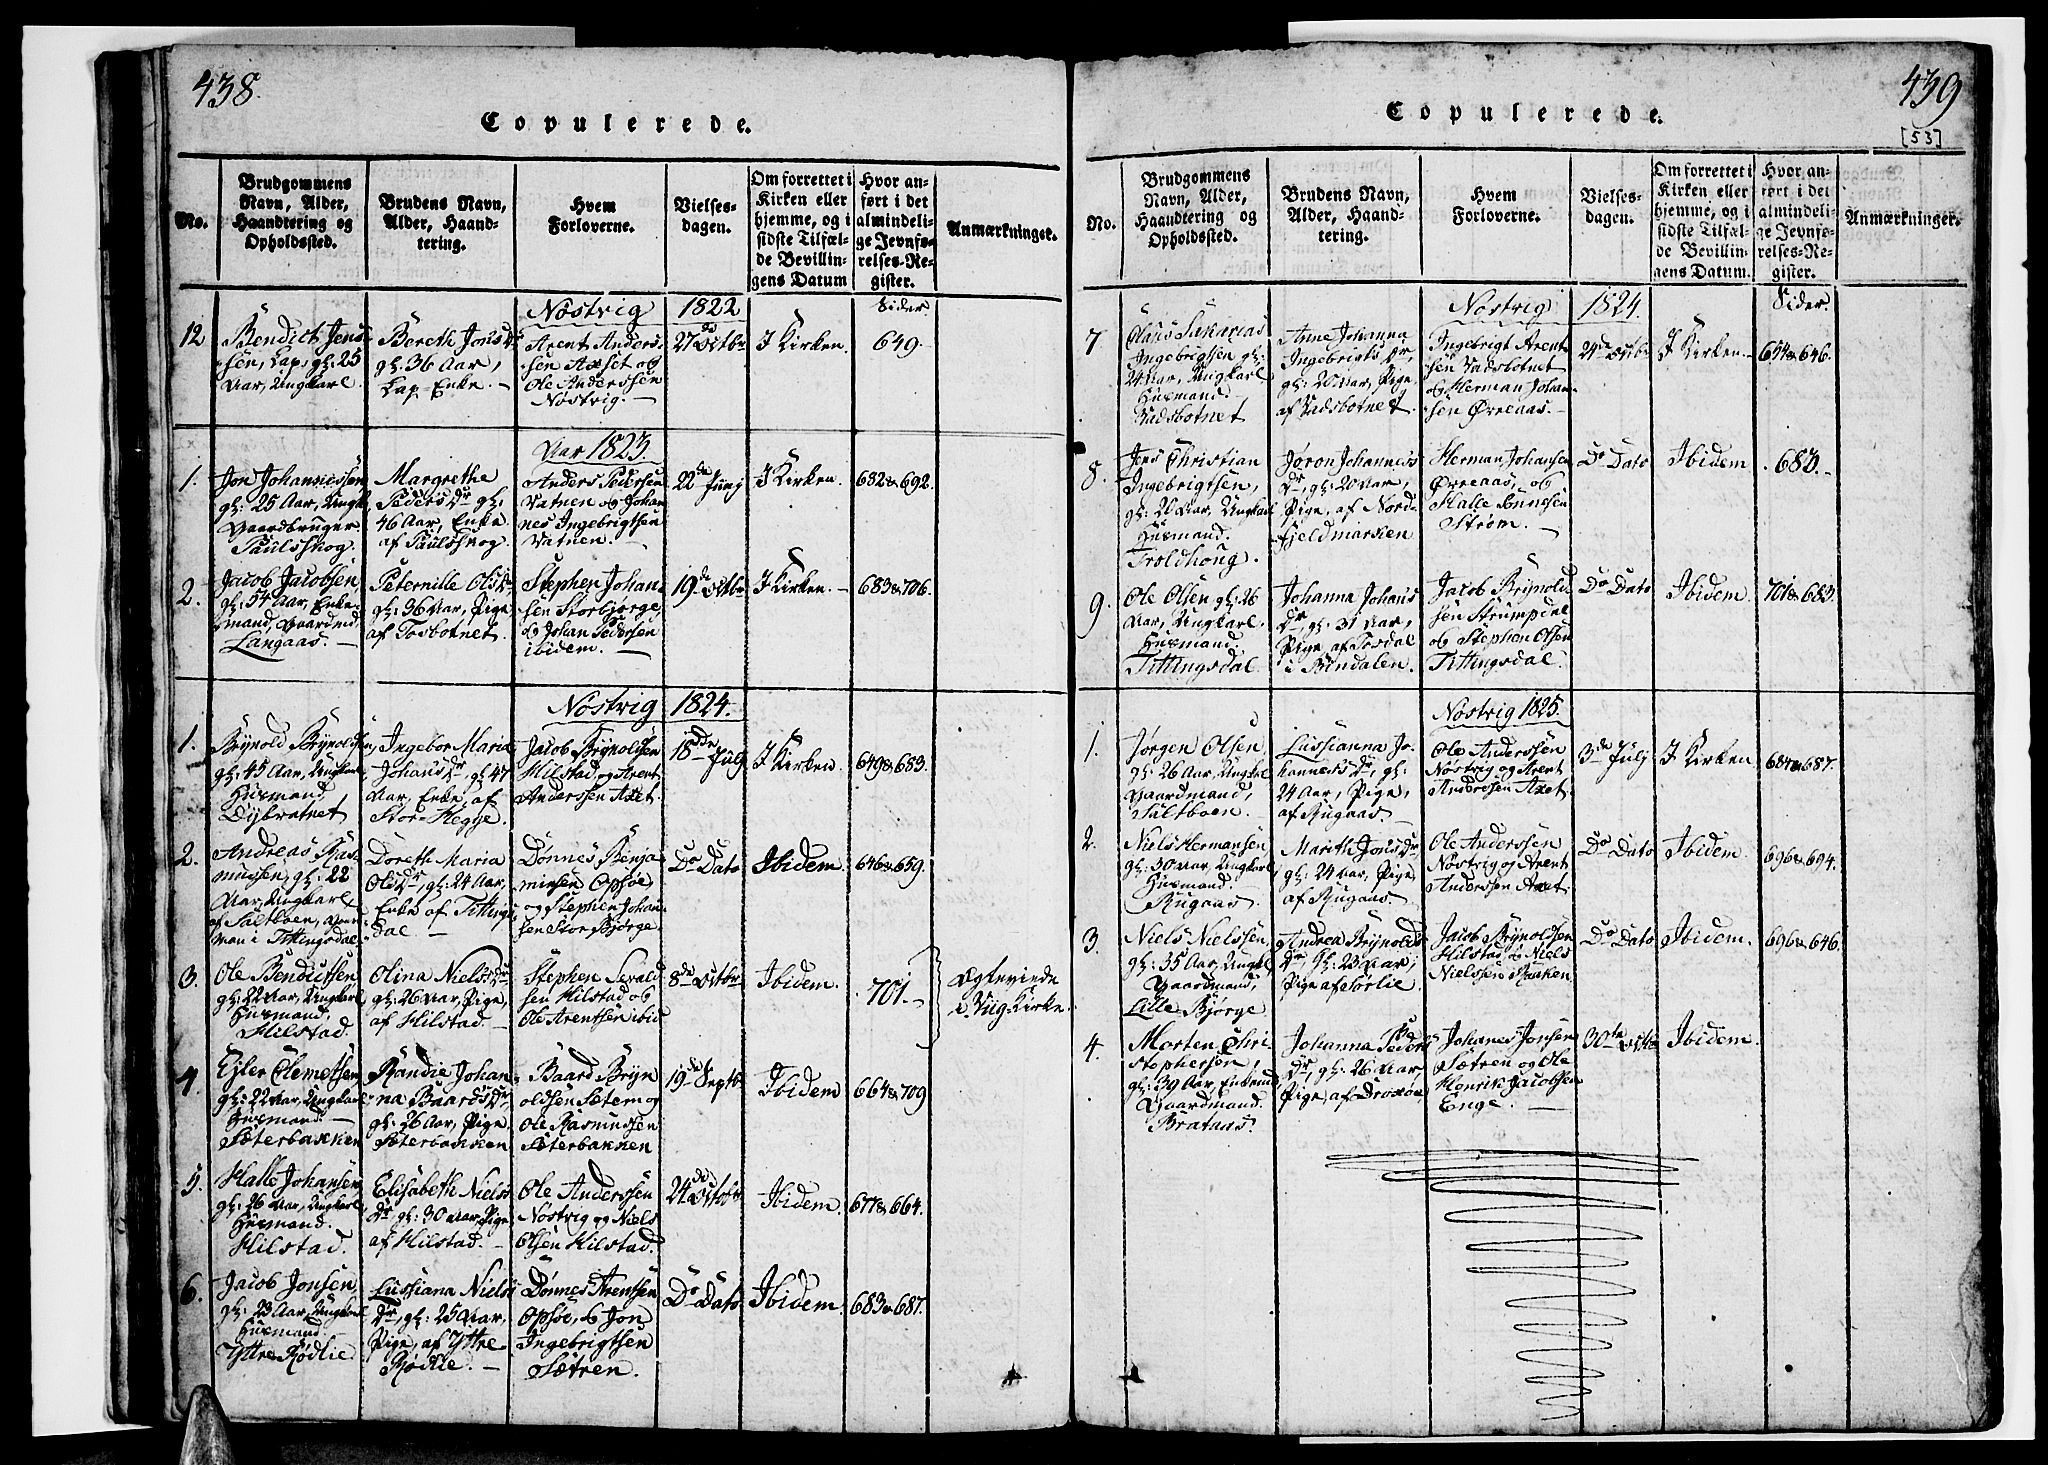 438.
Copulerede.
No.
Brudgommens Navn, Alder, Haandtering og Opholdssted.
Brudens Navn, Alder, Haandtering.
Hvem Forloverne.
Vielsesdagen.
Om forrettet i Kirken eller hjemme, og i sidste Tilfælde Bevillingens Datum
Hvor anført i det almindelige Jevnførelses-Register.
Anmærkninger.
Nostvig 1822
Sider.
12
Bendict Jens
sen, Lap, gl: 25
Aar, Ungkarl.
Bereth Jonsdr
gl: 36 Aar,
Lap Enke.
Arent Anders
sen Axset og
Ole Anderssen
Nöstvig.
27de Octbr
I Kirken.
649.
Aar 1823.
1.
Jon Johannessen
gl: 25 Aar, Ungk.
Gaardbruger
Paulsskog.
Margrethe
Peders Dr gl:
46 Aar, Enke
af Paulsskog.
Anders Pedersen
Vatnen og Johan
nes Ingebrigtsen
Vatnen.
22de Junj
I Kirken.
682 & 692.
2.
Jacob Jacobsen,
gl: 54 Aar, Enke-
mand, Gaardmd.
Langaas.
Peternille Olsdr
gl: 36 Aar, Pige
af Tosbotnet.
Stephen Johan
sen Storbjorge
og Johan Pedersen
ibidem.
19de Octbr
I Kirken.
683 & 706.
Nöstvig 1824.
1.
Brynold Brynoldsen,
gl: 45 Aar, Ungkarl
Husmand
Dybvatnet
Ingebor Maria
Johans Dr, gl 47
Aar, Enke af
Stor-Hegge.
Jacob Brynoldsen
Hilstad, og Arent
Anderssen Axet.
18de July
I Kirken.
649 & 683.
2.
Andreas Ras
mussen, gl: 22
Aar, Ungkarl
af Saltboen, Gaard
man i Tettingsdal
Doreth Maria
Ols Dr, gl: 24 Aar,
Enke af Tettings
dal
Dønnes Benja
minsen Opsöe,
og Stephen Johan
sen Stor Bjørge.
Do Dato
Ibidem.
646 & 659.
3.
Ole Bendictsen
gl: 22 Aar, Ungkarl
Husmand,
Hilstad.
Olina Niels Dr
gl: 26 Aar, Pige,
af Hilstad.
Stephen Sevald
sen Hilstad og
Ole Arentsen ibid
8de Octbr
Ibidem.
701.
Ægteviede
i Viig Kirke.
4.
Ejler Clemetsen
gl: 22 Aar, Ungkarl
Husmand.
Sæterbakken
Randie Johan
na Baards Dr,
gl: 26 Aar, Pige.
Sæterbakken
Baard Bryn
oldsen Sætem og
Ole Rasmussen
Sæterbakken
19de Septb.
Ibidem
664 & 709
5.
Halle Johansen
gl: 26 Aar, Ungkarl
Husmand.
Hilstad.
Elisabeth Niels
Dr gl: 30 Aar, Pige
af Hilstad.
Ole Anderssen
Nöstvig og Niels
Olsen Hilstad.
24de Octobr
Ibidem.
677 & 664.
6.
Jacob Jonsen,
gl: 23 Aar, Ungkarl
Husmand
Yttre Rødlie
Lussiana Niels
Dr, gl: 25 Aar,
Pige, af Yttre
Rødlie.
Dønnes Arentsen
Opsöe, & Jon
Ingebrigtsen
Sætren.
Do Dato
Ibidem.
683 & 687.
439
[53]
Copulerede.
No.
Brudgommens Navn, Alder, Haandtering og Opholdssted.
Brudens Navn, Alder, Haandtering.
Hvem Forloverne.
Vielsesdagen.
Om forrettet i Kirken eller hjemme, og i sidste Tilfælde Bevillingens Datum.
Hvor anført i det almindelige Jevnførelses-Register.
Anmærkninger.
Nöstvig 1824.
Sider.
7
Olaus Sakarias
Ingebrigtsen gl:
24 Aar, Ungkarl
Husmand.
Vadsbotnet
Anne Johanna
Ingebrigts Dr,
gl: 20 Aar, Pige
af Vadsbotnet
Ingebrigt Arent
sen Vadsbotnet
og Herman Johan
sen Ørreaas.
24de Octb
I Kirken.
654 & 646.
8.
Jens Christian
Ingebrigtsen,
gl: 20 Aar, Ungkarl
Husmand.
Troldhoug.
Jøron Johannes
Dr, gl: 20 Aar,
Pige, af Nord-
fjeldmarken
Herman Johansen
Ørreaas, og
Halle Tønnesen
Strøm.
Do Dato
Ibidem
683.
9.
Ole Olsen gl: 26
Aar, Ungkarl.
Husmand.
Tettingsdal
Johanna Johans
Dr, gl: 31 Aar,
Pige af Tosdal
i Bindalen.
Jacob Brynold
sen Strumpdal
og Stephen Olsen
Tettingsdal.
Do Dato
Ibidem.
701 & 683.
Nöstvig 1825.
1.
Jørgen Olsen,
gl: 26 Aar, Ungkarl
Gaardmand,
Saltboen.
Lussianna Jo-
hannes Dr, gl:
24 Aar, Pige,
af Rugaas.
Ole Anderssen
Nöstvig og Arent
Anderssen Axet.
3de Julj
I Kirken
684 & 687.
2.
Niels Hermansen
gl: 30 Aar, Ungkarl,
Husmand.
Rugaas
Mareth Jons Dr
gl: 24 Aar, Pige,
af Rugaas.
Ole Anderssen
Nöstvig og Arent
Anderssen Axet.
Do Dato
Ibidem.
696 & 694.
3.
Niels Nielssen
gl: 35 Aar, Ungkl.
Gaardmand,
Lille Bjørge
Andrea Brynolds
Dr, gl: 23 Aar,
Pige af Sørlie.
Jacob Brynoldsen
Hilstad & Niels
Nielssen Baaken
Do Dato
Ibidem.
696 & 646.
4.
Morten Chri-
stophersen,
gl: 39 Aar, Enkemd
Gaardmand.
Brataas.
Johanna Peders
Dr, gl: 26 Aar
Pige, af
Johanes Jonsen
Sætren og Ole
Henrik Jacobsen
Enge.
30te Octb
Ibidem.